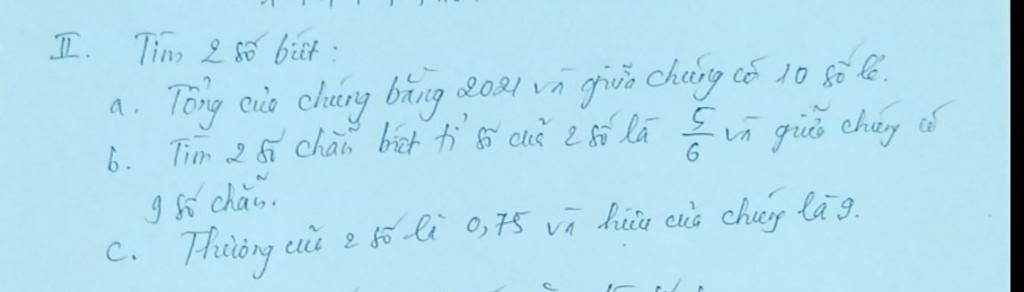 II. Tìm 2 số biết:
a. Tổng của chúng bằng 2021 và giữa chúng có 10 số lẻ.
b. Tìm 2 số chẵn biết tỉ số của 2 số là 5/6 và giữa chúng có
9 số chẵn.
c. Thương của 2 số là 0,75 và hiệu của chúng là 9.